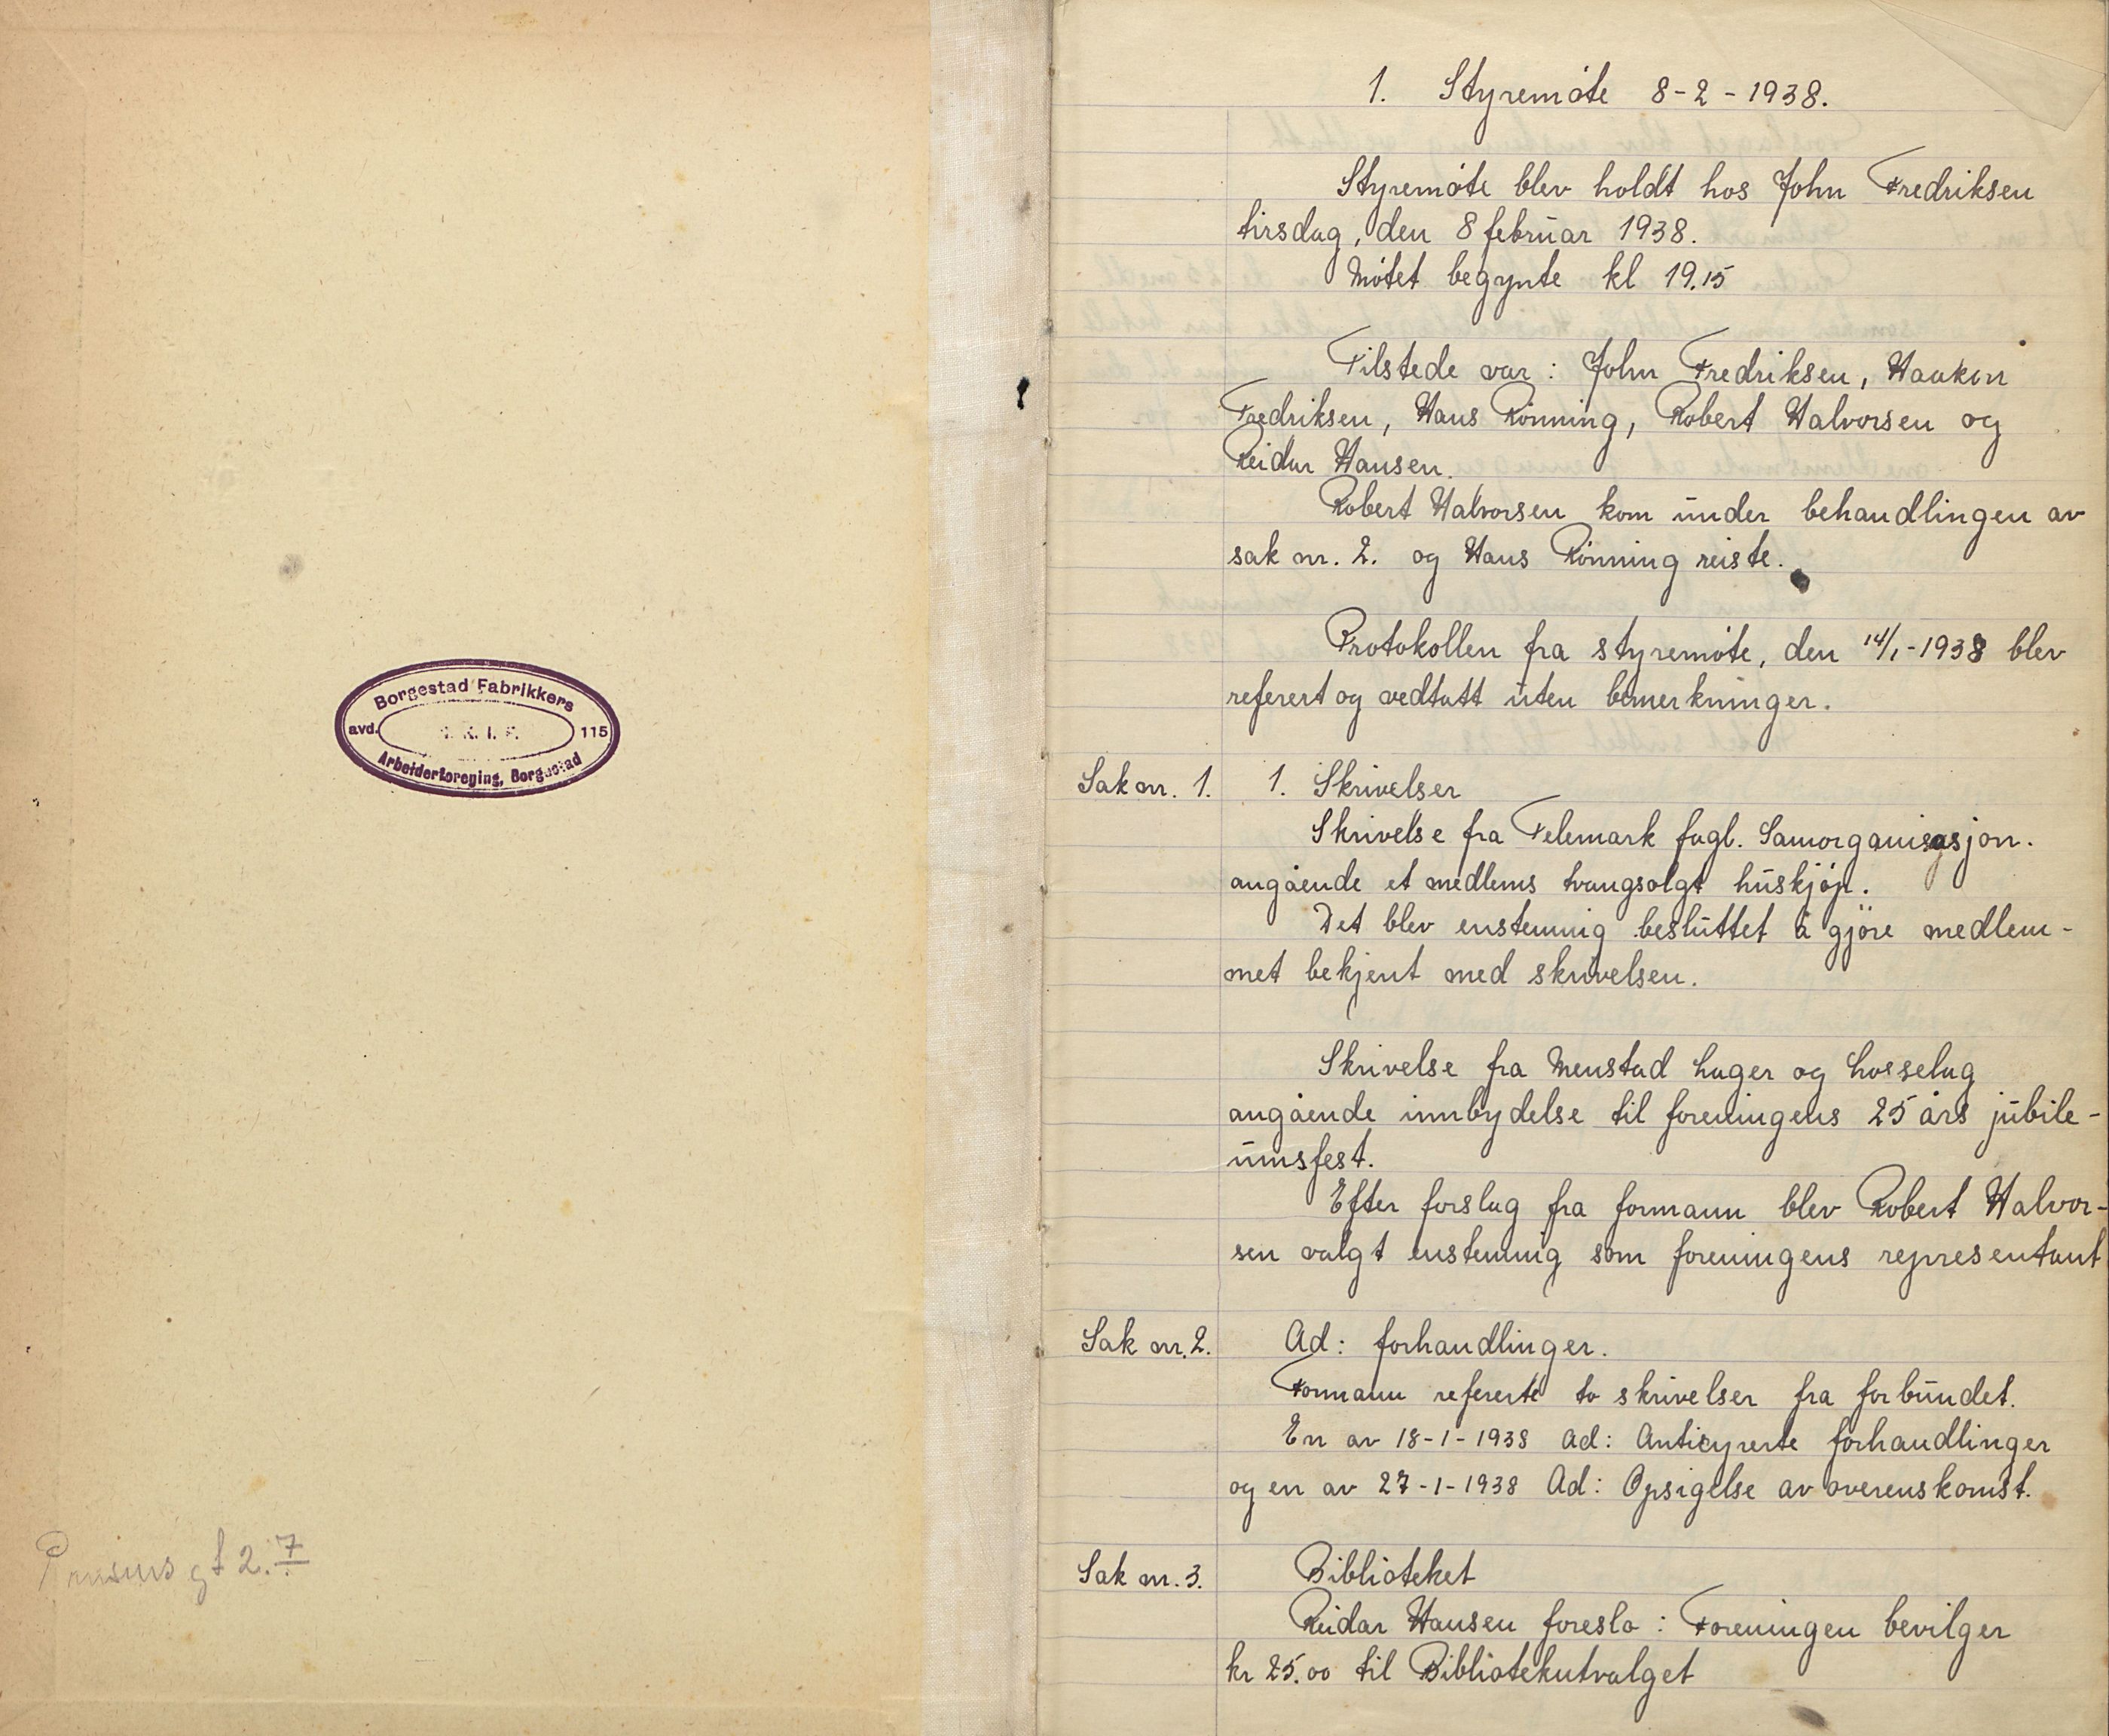 Borgestad Fabrikkers
avd. 115
Arbeiderforening, Borgestad
2. 7
1. Styremöte 8-2-1938.
Styremöte blev holdt hos John Fredriksen
tirsdag, den 8 februar 1938.
Mötet begynte kl 19.15
Tilstede var: John Fredriksen, Haakon
Fredriksen, Hans Rönning, Robert Halvorsen og
Reidar Hansen.
Robert Halvorsen kom under behandlingen av
sak nr. 2. og Hans Rönning reiste.
Protokollen fra styremöte, den 14/1-1938 blev
referert og vedtatt uten bemerkninger.
Sak nr. 1. 1. Skrivelser
Skrivelse fra Telemark fagl. Samorganisasjon.
angående et medlems tvangsolgt huskjöp.
Det blev enstemmig besluttet å gjöre medlem-
met bekjent med skrivelsen.
Skrivelse fra Menstad Lager og Losselag
angående innbydelse til foreningens 25 års jubile-
umsfest.
Efter forslag fra formann blev Robert Halvor-
sen valgt enstemmig som foreningens representant
Sak nr. 2. Ad: forhandlinger.
Formann refererte to skrivelser fra forbundet.
En av 18-1-1938 Ad: Anticyrerte forhandlinger
og en av 27-1-1938 Ad: Opsigelse av overenskomst.
Sak nr. 3. Biblioteket
Reidar Hansen foreslo: Foreningen bevilger
kr 25.00 til Bibliotekutvalget